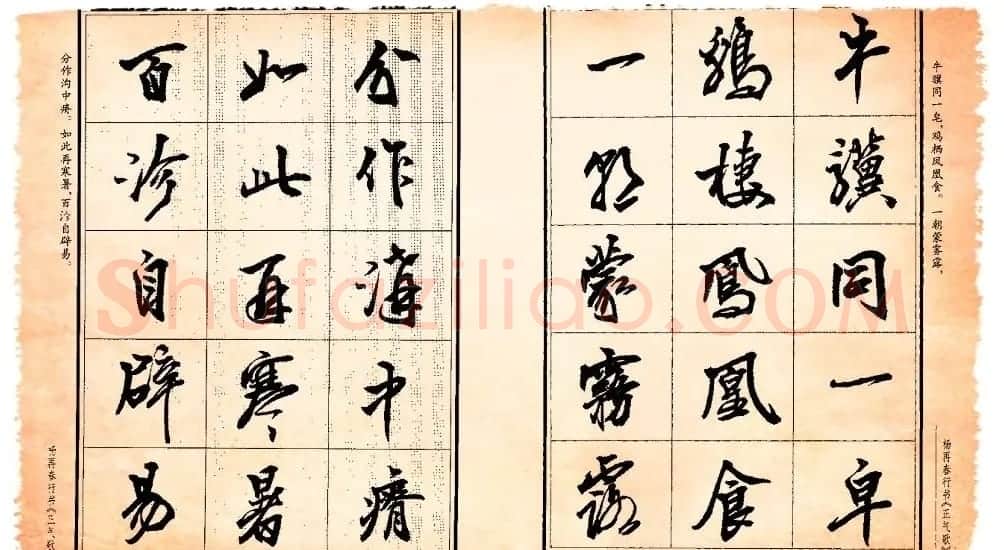 牛骥同一皂，鸡栖凤凰食。一朝蒙雾露，
杨再春行书《正气歌》
牛驥同一皁
鷄棲鳳凰食
一朝蒙霧露
分作溝中瘠
如此再寒暑
百沴自辟易
分作沟中瘠。如此再寒暑，百沴自辟易。
杨再春行书《正气歌
Shufaziliao.COM